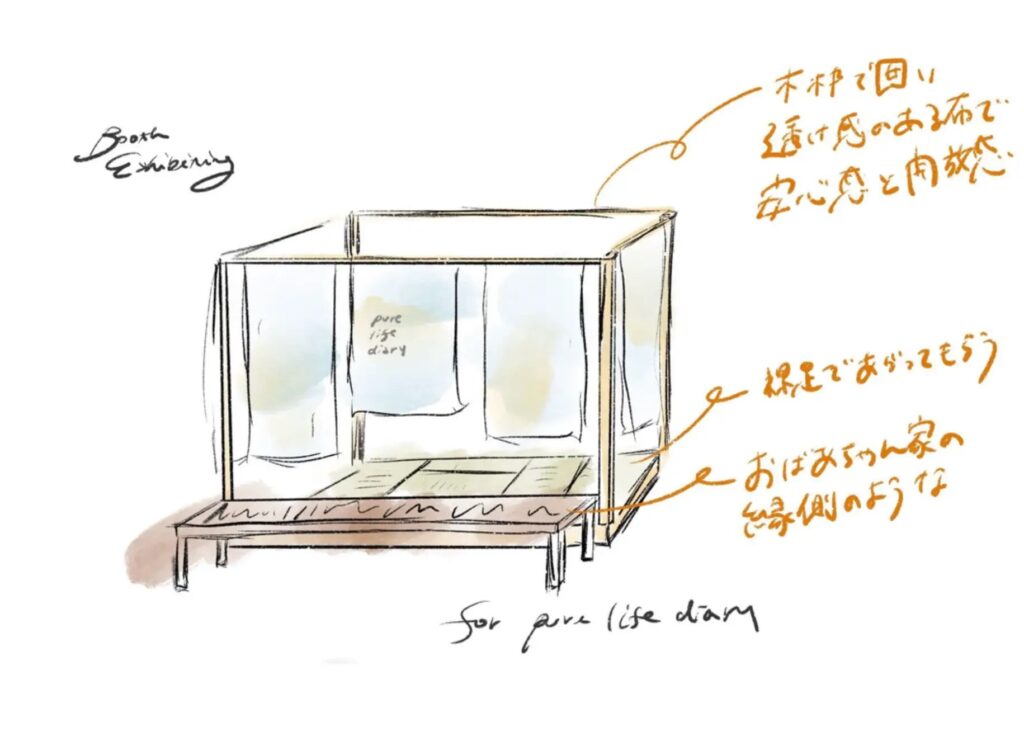 Booth
Exhibiting
木枠で囲い
透け感のある布で
安心感と開放感
pure
life
diary
裸足であがってもらう
おばあちゃん家の
縁側のような
for pure life diary